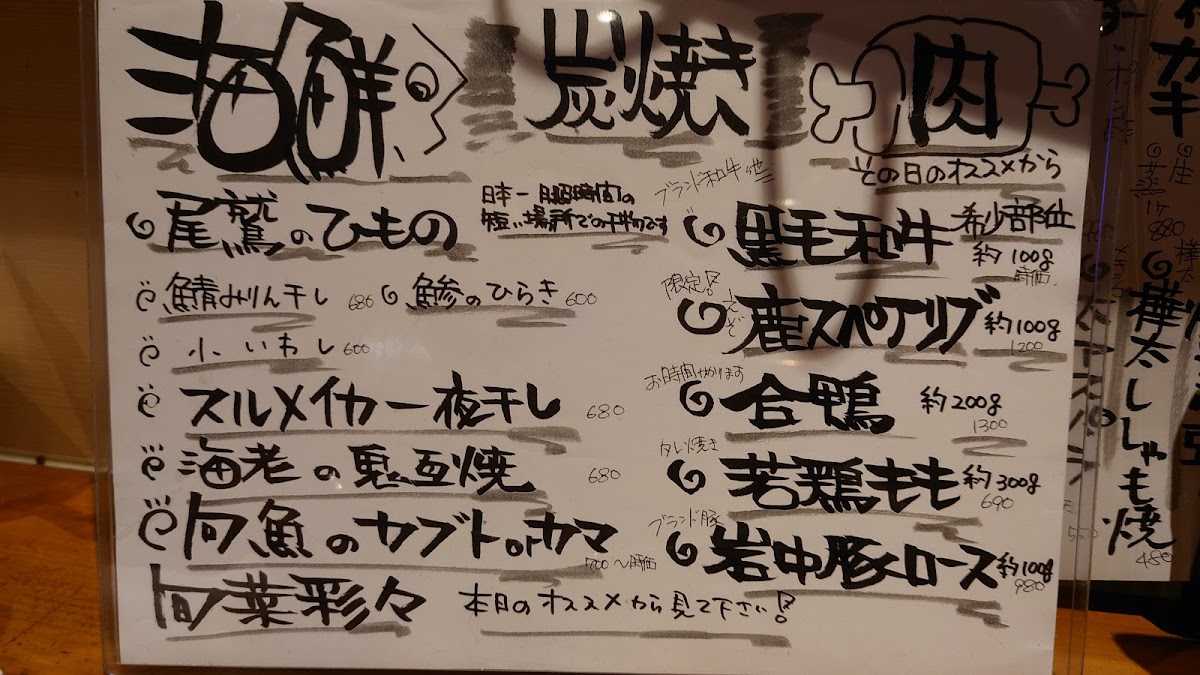 海鮮 炭焼き 肉
その日のオススメから
尾鷲のひもの
日本一日照時間の
短い場所での干物です
鯖みりん干し 680
鯵のひらき 600
小いわし 600
スルメイカ一夜干し 680
海老の鬼瓦焼 680
旬魚のカブトorカマ
700〜時価
旬菜彩々 本日のオススメから見て下さい!
ブランド和牛
黒毛和牛 希少部位
約100g
時価
限定!
えぞ鹿スペアリブ 約100g
1200
お時間かかります
合鴨 約200g
1300
タレ焼き
若鶏もも 約300g
690
ブランド豚
岩中豚ロース 約100g
980
カキ
生
蒸
1ケ
880
樺太ししゃも焼
480